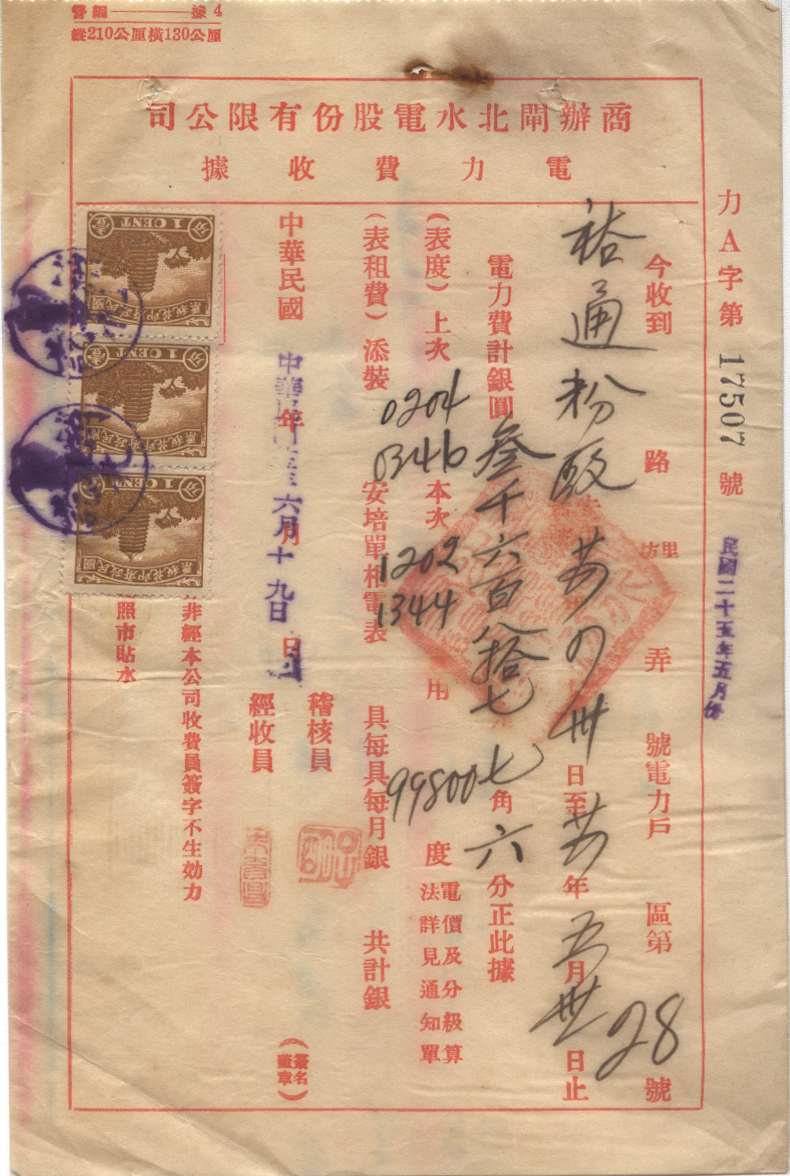 據 4
縱210公厘橫130公厘
商辦閘北水電股份有限公司
電力費收據
力A字第 17507 號
民國二十五年五月份
今收到 路 弄 號電力戶 區第 28 號
裕通粉廠 廿五年 四月 卅 日至 廿五 年 五 月 卅一 日止
電力費計銀圓 叁千六百八拾七 七 角 六 分正此據
(表度) 上次 0204 0346 本次 1202 1344 用 99800 度 電價及分級算法詳見通知單
(表租費) 添裝 安培單相電表 具每具每月銀 共計銀
中華民國 年 月 日
六月十九日
稽核員
經收員
(簽名蓋章)
非經本公司收費員簽字不生効力
照市貼水
1 CENT
分 壹
國民政府印花稅票
1 CENT
分 壹
國民政府印花稅票
1 CENT
分 壹
國民政府印花稅票